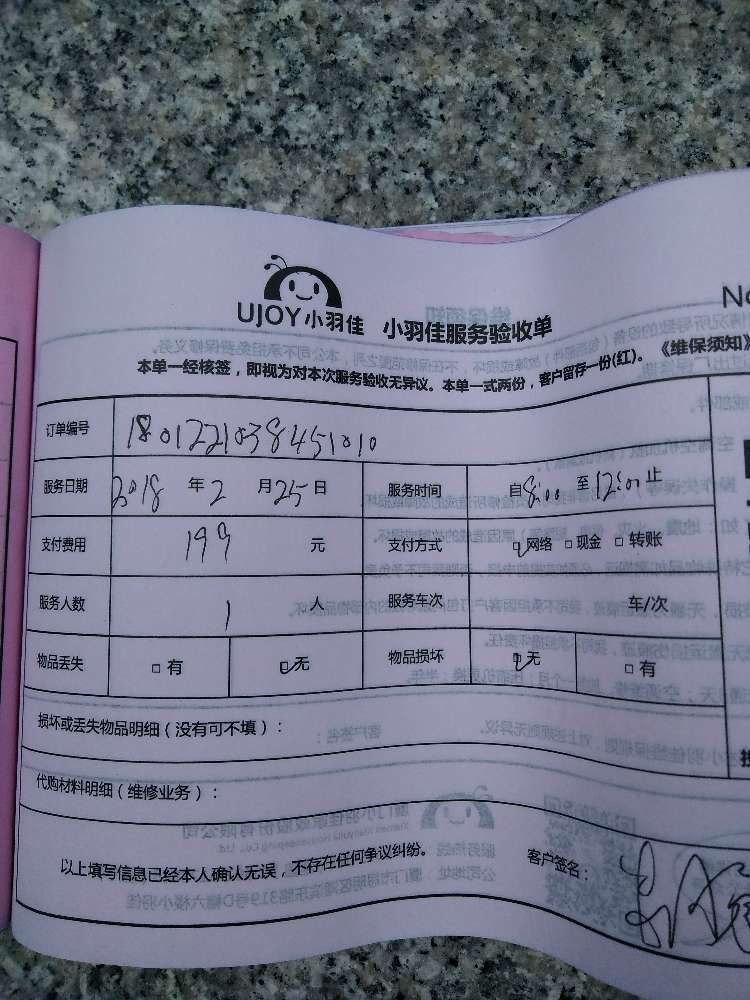 No
UJOY小羽佳 小羽佳服务验收单
本单一经核签，即视为对本次服务验收无异议。本单一式两份，客户留存一份(红)。《维保须知》
订单编号 1801221038451010
服务日期 2018 年 2 月 25 日 服务时间 自 8:00 至 12:00 止
支付费用 199 元 支付方式 ☑网络 □现金 □转账
服务人数 1 人 服务车次 车/次
物品丢失 □有 ☑无 物品损坏 ☑无 □有
损坏或丢失物品明细（没有可不填）：
代购材料明细（维修业务）：
以上填写信息已经本人确认无误，不存在任何争议纠纷。 客户签名：